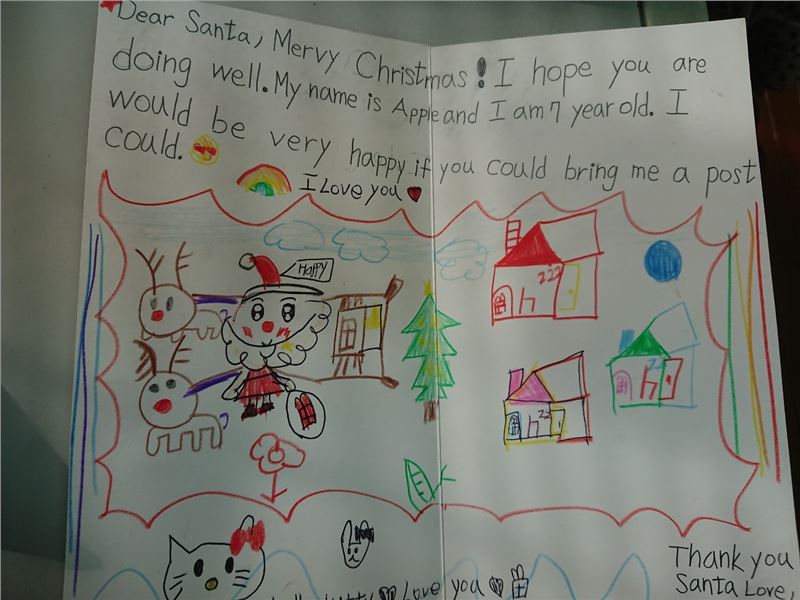 Dear Santa, Mervy Christmas! I hope you are
doing well. My name is Apple and I am 7 year old. I
would be very happy if you could bring me a post
could.
I Love you
Happy
222
22
Love you
Thank you
Santa Love,